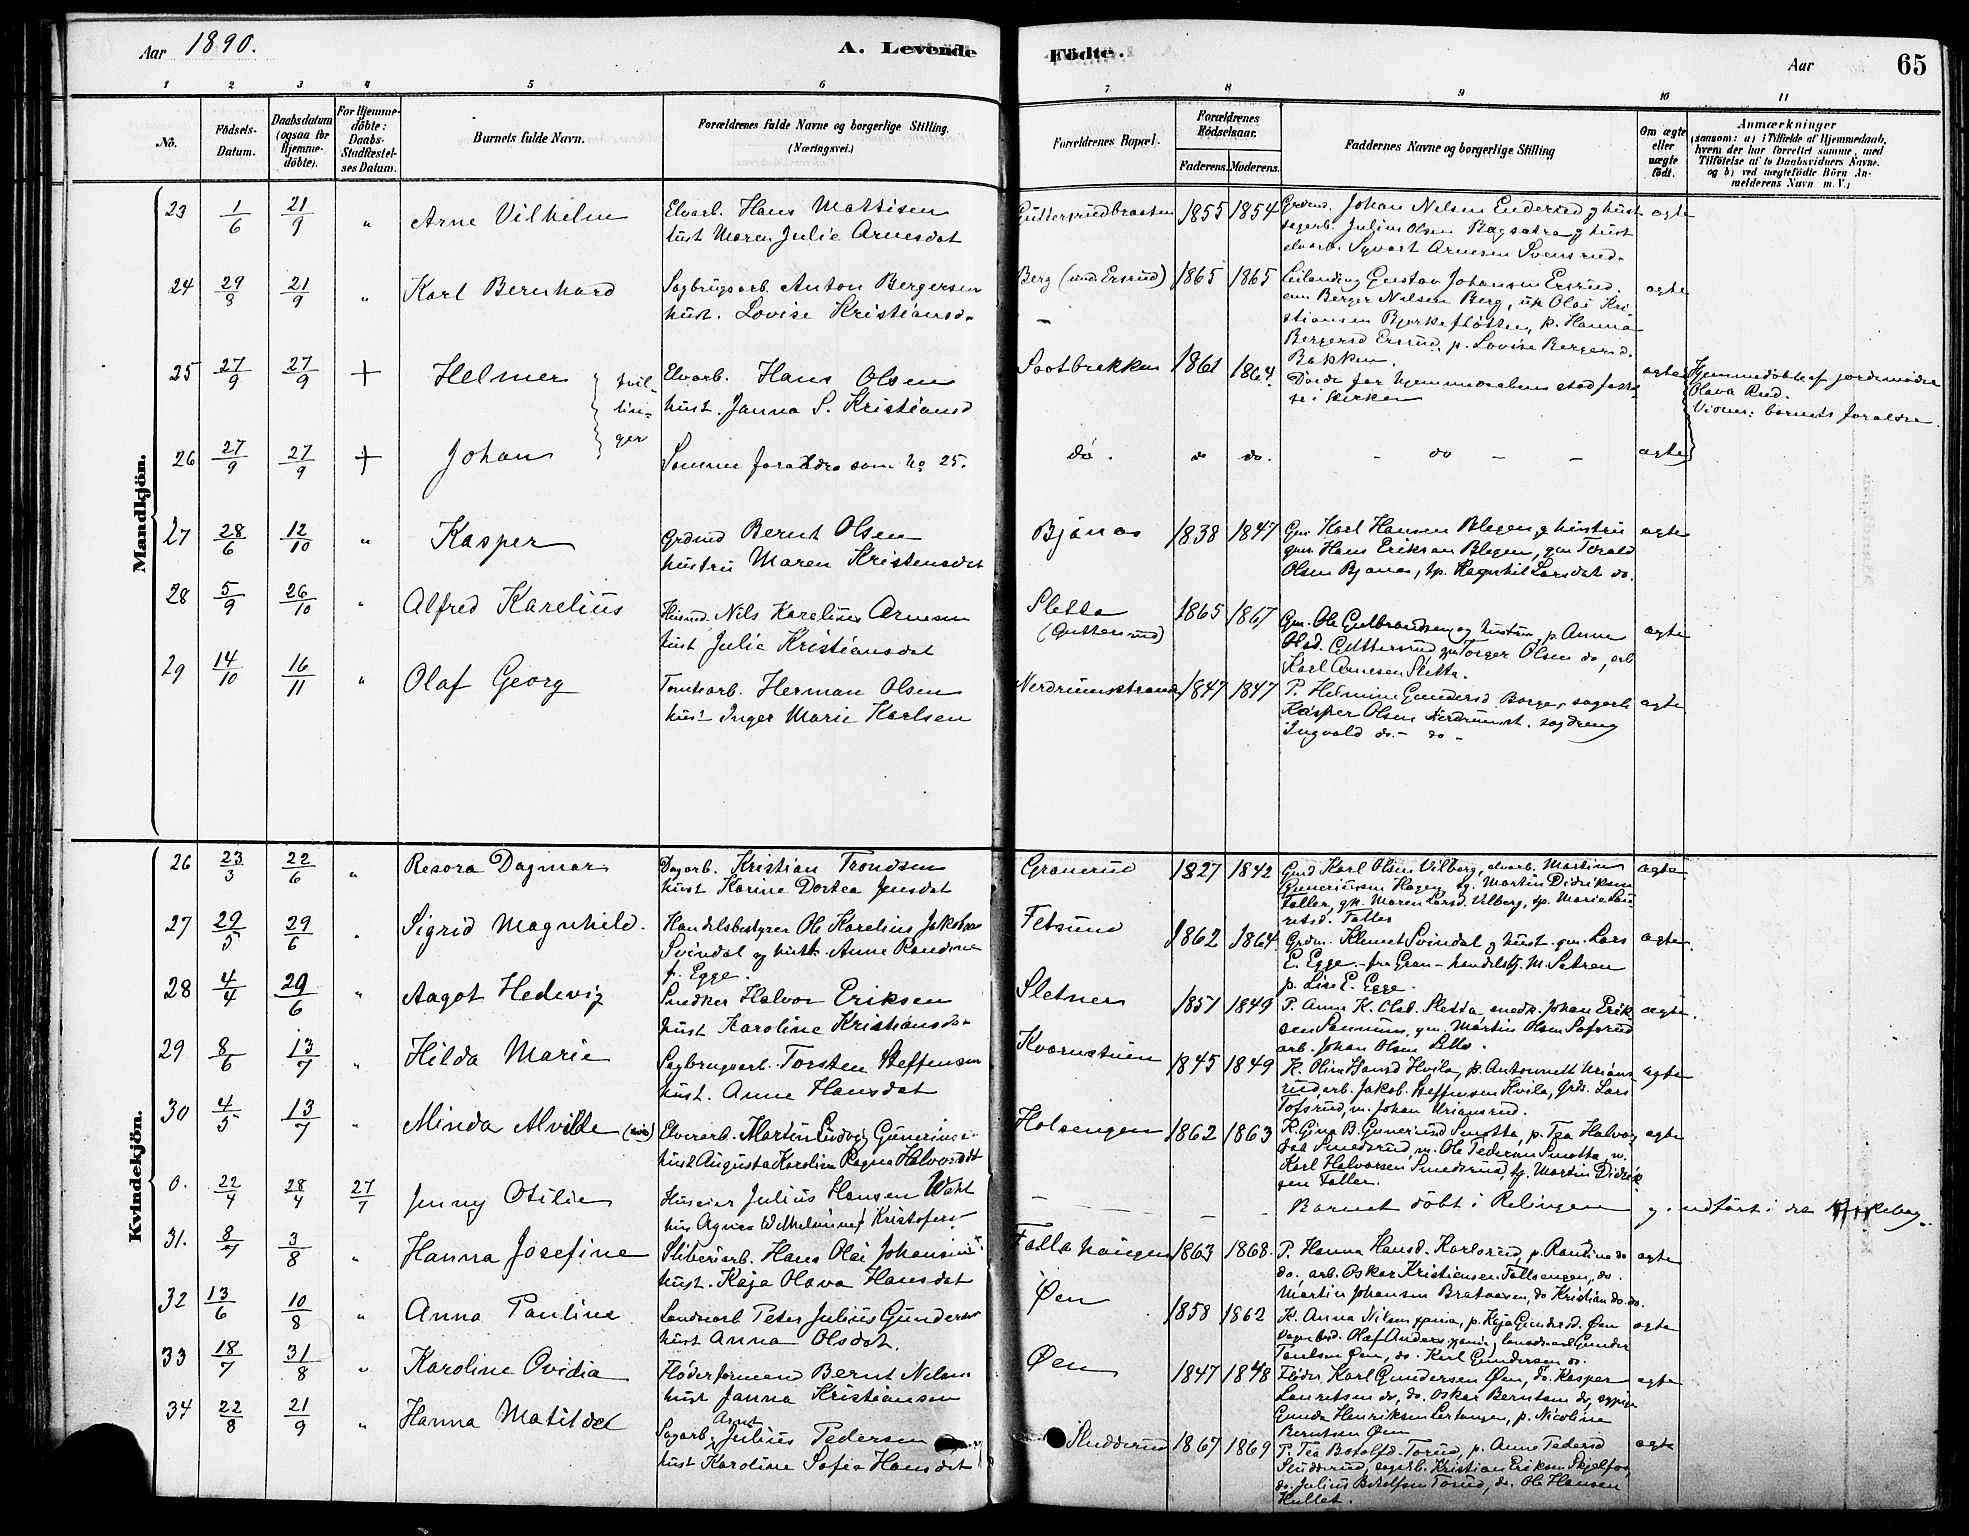 Aar 1890.
A. Levende
Födte.
Aar
65
1 2 3 4 5 6 7 8 9 10 11
No.
Födsels-Datum.
Daabsdatum (ogsaa for Hjemme-döbte).
For Hjemme-döbte: Daabs-Stadfæstel-ses Datum.
Barnets fulde Navn.
Forældrenes fulde Navne og borgerlige Stilling. (Næringsvei.)
Forældrenes Bopæl.
Forældrenes Födselsaar.
Faderens.
Moderens.
Faddernes Navne og borgerlige Stilling
Om ægte eller uægte födt.
Anmærkninger
(saasom: a) i Tilfælde af Hjemmedaab, hvem der har forrettet samme, med Tilföielse af to Daabsvidners Navne. og b) ved uægtefödte Börn An-melderens Navn m. V.)
Mandkjön.
23 1/6 21/9 " Arne Vilhelm Elvarb. Hans Mattisen
hust Maren Julie Arnesdat
Guttersrudbraaten 1855 1854 Grdmd. Johan Nilsen Enderud og hust
sagarb. Julius Olsen Bagsætra og hust
elvarb. Syvert Arnesen Svensrud
ægte
24 29/8 21/9 " Karl Bernhard Sagbrugsarb. Anton Bergersen
hust. Lovise Kristiansd.
Berg (und. Ersrud) 1865 1865 Leilænding Gustav Johansen Ersrud.
em Berger Nilsen Berg, uk Olai Kri-
stiansen Bjerkefløtten, p. Hanna
Bergersd Ersrud, p. Lovise Bergersd.
Bakken.
ægte
25 27/9 27/9 + Helmer tvil-lin-ger Elvarb. Hans Olsen
hust. Janna S. Kristiansd
Sootbrekken 1861 1864. Døde før hjemmedaabens stadfæstel-
se i kirken
ægte Hjemmedøbt af jordemoder
Olava Rud.
Vidner: barnets forældre.
26 27/9 27/9 + Johan Samme forældre som No 25.
do. do do. - do - - ægte
27 28/6 12/10 " Kasper Grdmd Bernt Olsen
hustru Maren Kristensdat
Bjanes 1838 1847 Gm. Karl Hansen Blegen og hustru
gm. Hans Eriksen Blegen, gm Torald
Olsen Bjanes, tp. Magnhil Larsdat do.
ægte
28 5/9 26/10 " Alfred Karelius Husmd. Nils Karelius Arnesen
hust Julie Kristiansdat
Sletta
(Guttersrud)
1865 1867 Gm. Ole Gulbrandsen og hustru, p. Anne
Olsd. Guttersrud, gm Torger Olsen do, arb.
Karl Arnesen Sletta.
ægte
29 14/10 16/11 " Olaf Georg Tomtearb. Herman Olsen
hust Inger Marie Karlsen
Nerdrumsstrand 1847 1847 P. Helmine Gundersd Borge, sagarb
Kasper Olsen Nerdrumst. sagdreng
Ingvald do. - do -
ægte
Kvindekjön.
26 23/3 22/6 " Resora Dagmar Dagarb. Kristian Trondsen
hust Karine Dortea Jensdat
Granerud 1827 1842 Gmd Karl Olsen Vilberg, elvarb. Martin
Guneriussen Hagen, tg. Martin Didriksen
Faller, gk. Maren Larsd. Vilberg, tp. Marie Lau-
ritsd. Faller
ægte
27 29/5 29/6 " Sigrid Magnhild. Handelsbestyrer Ole Karolius Jakobsen
Svindal og hust. Anne Randine
f. Egge.
Fetsund 1862 1864. Grdm. Klemet Svindal og hust. gm. Lars
E. Egge - fra Gran - handelsbtj. M. Sætren
p. Lise E. Egge.
ægte.
28 4/4 29/6 " Aagot Hedevig Snedker Halvor Eriksen
hust Karoline Kristiansdat
Sletner 1851 1849 P. Anne K. Olsd. Sletta snedk. Johan Erik-
sen Sannum, gm. Martin Olsen Tofsrud
arb. Johan Olsen Lillo.
ægte.
29 8/6 13/7 " Hilda Marie Sagbrugsarb. Torsten Steffensen
hust. Anne Hansdat
Kvernstuen 1845 1849 K. Oline Hansd Hvila, p. Antonett Urians-
rud, arb. Jakob Steffensen Hvila, grd. Lars
Tofsrud, u. Johan Uriansrud.
ægte
30 4/5 13/7 " Minda Alvilde Elvearb. Martin Ludvig Guneriuss.
hust Augusta Karoline Ragna Halvorsdt
Holsengen 1862 1863 K. Gina B. Guneriusd Smotta, p. Tea Halvors-
dat Smedsrud, u. Ole Pedersen Smotta, u.
Karl Halvorsen Smedsrud, tg. Martin Didrik-
sen Faller.
ægte
0. 22/4 28/4 27/7 Jenny Otilie Huseier Julius Hansen Wahl
hus Agnes Wilhelmine f Kristofers.
- - - Barnet døbt i Relingen og indført i dets kirkebog.
31. 8/7 3/8 " Hanna Josefine Sliberiarb. Hans Olai Johansen
hust. Kaja Olava Hansdat
Fallahaugen 1863 1868. P. Hanna Hansd. Karlsrud, p. Randine do
do., arb. Oskar Kristiansen Fallaengen, do.
Martin Johansen Brataasen, do Kristian do. do.
ægte
32 13/6 10/8 " Anna Pauline Landearb Peter Julius Gundersen
hust Anna Olsdat.
Øen 1858 1862 K. Anna Nilsen, p. Kaja Gundersd. Øen
Olaf Anders., Gunder
Paulsen Øen, do. Karl Gundersen do.
ægte
33 18/7 31/8 " Karoline Ovidia Fløderformand Bernt Nilsen
hust Janna Kristiansen
Øen 1847 1848 Fløder Karl Gundersen Øen, do. Kasper
Lauritsen do, do. Oskar Berntsen do,
Gunda Henriksen Lertangen, p. Nicoline
Berntsen Øen
ægte
34 22/8 21/9 " Hanna Matilde Sagarb. Arnt Julius Pedersen
hust Karoline Sofie Hansdat
Studderud 1867 1869 P. Tea Botolfd. Torud, p. Anne Pedersd
Studderud, sagarb. Kristian Eriksen Skjelfos,
do. Julius Botolfsen Torud, do. Ole Hansen
Hullet.
ægte